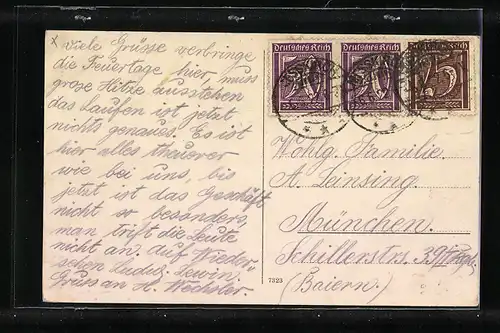 x viele Grüsse verbringe
die Feuertage hier, muss
grose Hitze ausstehen
das Laufen ist jetzt
nichts genaues. Es ist
hier alles theuerer
wie bei uns, bis
jetzt ist das Geschäft
nicht so besonders,
man trift die Leute
nicht an. Auf Wieder-
sehen Ludw. Lewin.
Gruss an H. Wechsler.
Deutsches Reich
Deutsches Reich
75
Wohlg. Familie
A. Leinsing
München.
Schillerstrs. 39
(Baiern).
7323